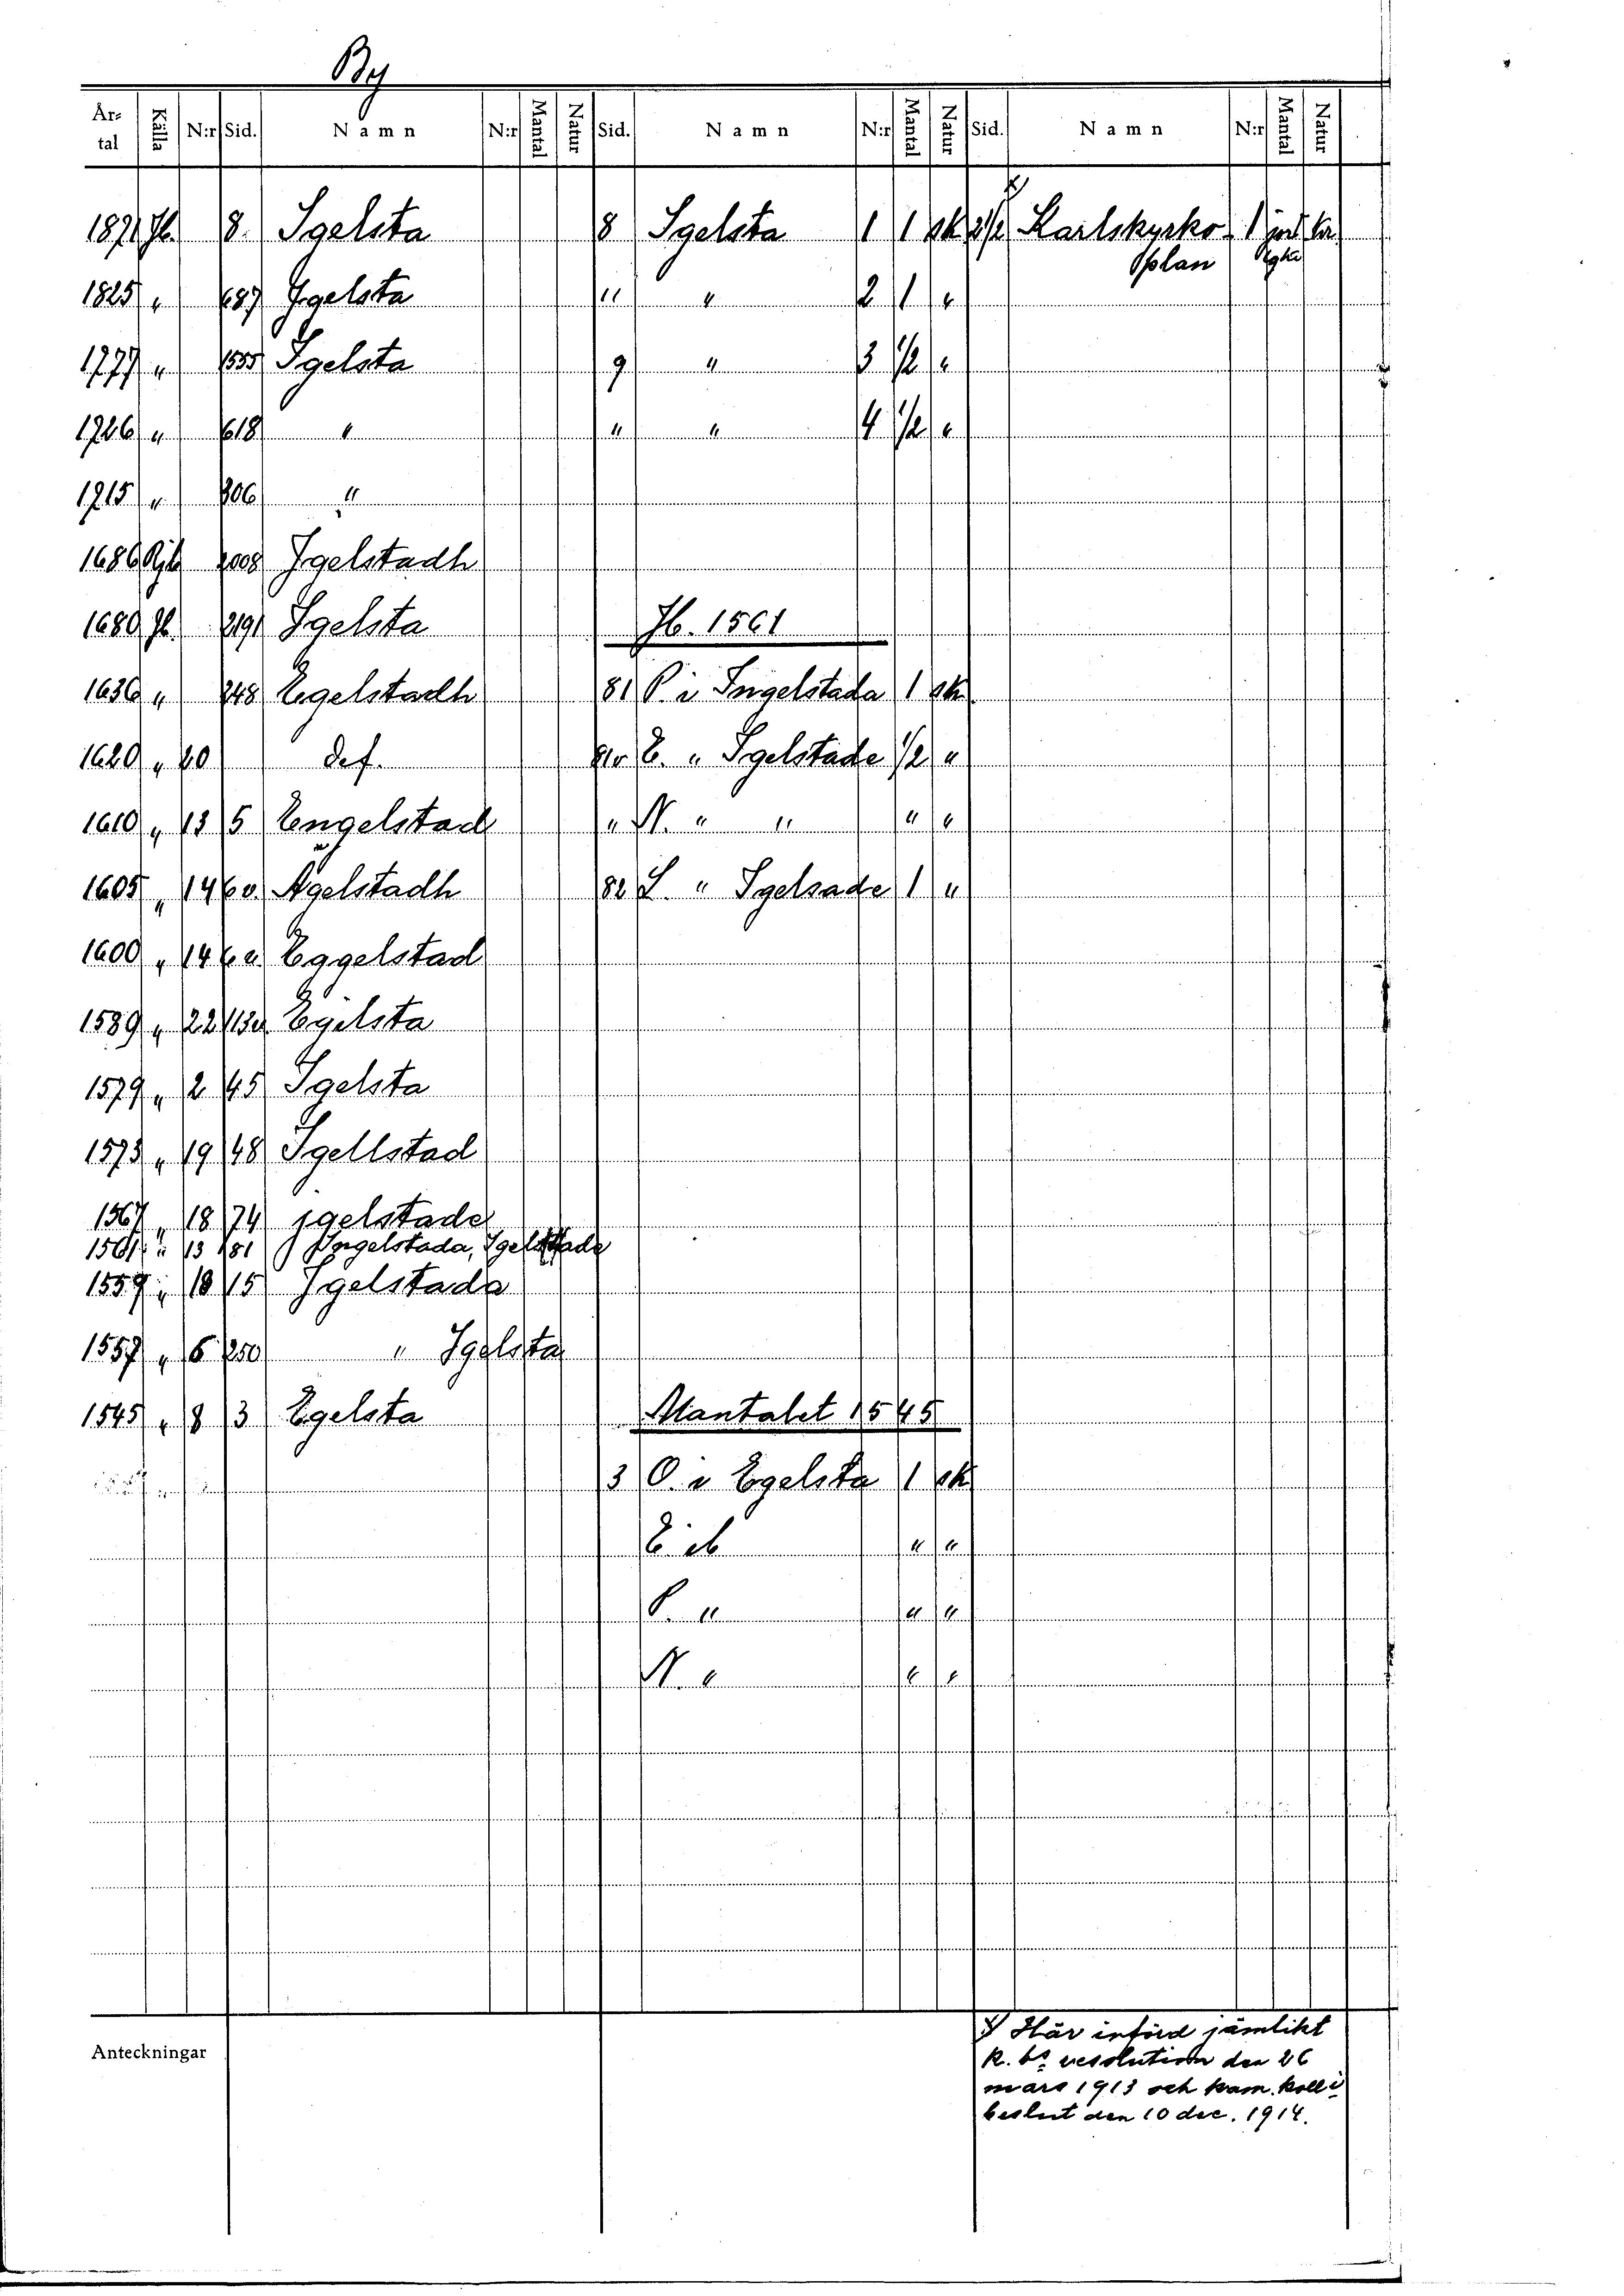 By
Är-
tal Källa N:r Sid. Namn N:r Mantal Natur Sid. Namn N:r Mantal Natur Sid. Namn N:r Mantal Natur
1871 Jb. 8. Igelsta 8 Igelsta 1 1 sk 8½ Karlskyrko- 1 jord
plan
1825 " 687 Igelsta " " 2 1 "
1777 " 1555 Igelsta 9 " 3 1/2 "
1726 " 618 " " " 4 1/2 "
1715 " 806 "
1686 Rjb 2008 Igelstadh
1680 Jb. 2191 Igelsta Jb. 1561
1636 " 248 Egelstadh 81 P. i Ingelstada 1 sk
1620 " 20 def. 81v E. " Igelstade 1/2 "
1610 " 13 5 Engelstad " N. " " " "
1605 " 14 6v. Ägelstadh 82 L. " Igelsade 1 "
1600 " 14 6a Eggelstad
1589 " 22 113v Egelsta
1579 " 2 45 Igelsta
1573 " 19 48 Igellstad
1567 " 18 74 igelstade
1561 " 13 81 Jngelstada, Igelstade
1559 " 18 15 Jgelstada
1557 " 6 250 " Igelsta
1545 " 8 3 Egelsta Mantalet 1545
3 O. i Egelsta 1 sk
E. ib " "
P. " " "
N. " " "
Anteckningar
Här införd jämlikt
K. bs resolution den 26
mars 1913 och kam. koll:i
beslut den 10 dec. 1914.